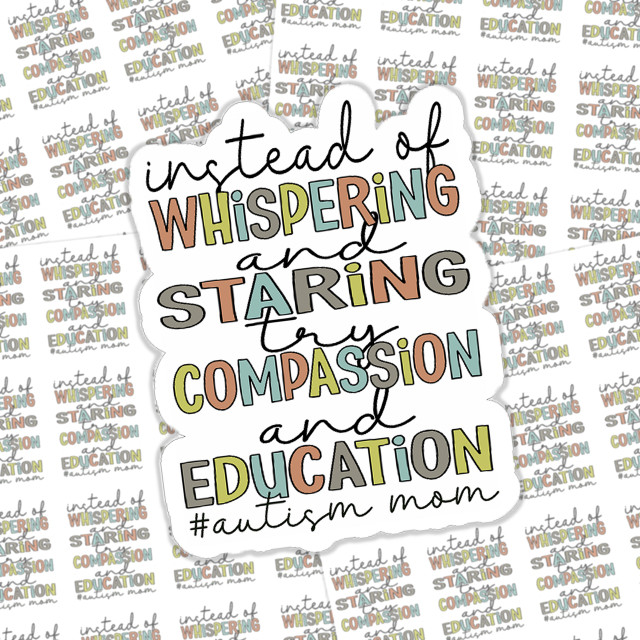 instead of
WHiSPERiNG
and
STARiNG
try
COMPASSiON
and
EDUCATiON
#autism mom